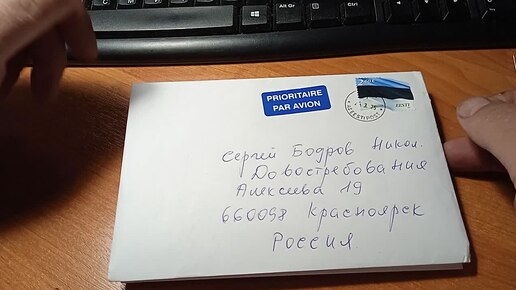 Alt Gr
Ctrl
PRIORITAIRE
PAR AVION
EESTI
Сергей Бодров Никол.
Довостребования
Алексеева 19
660098 Красноярск
Россия.